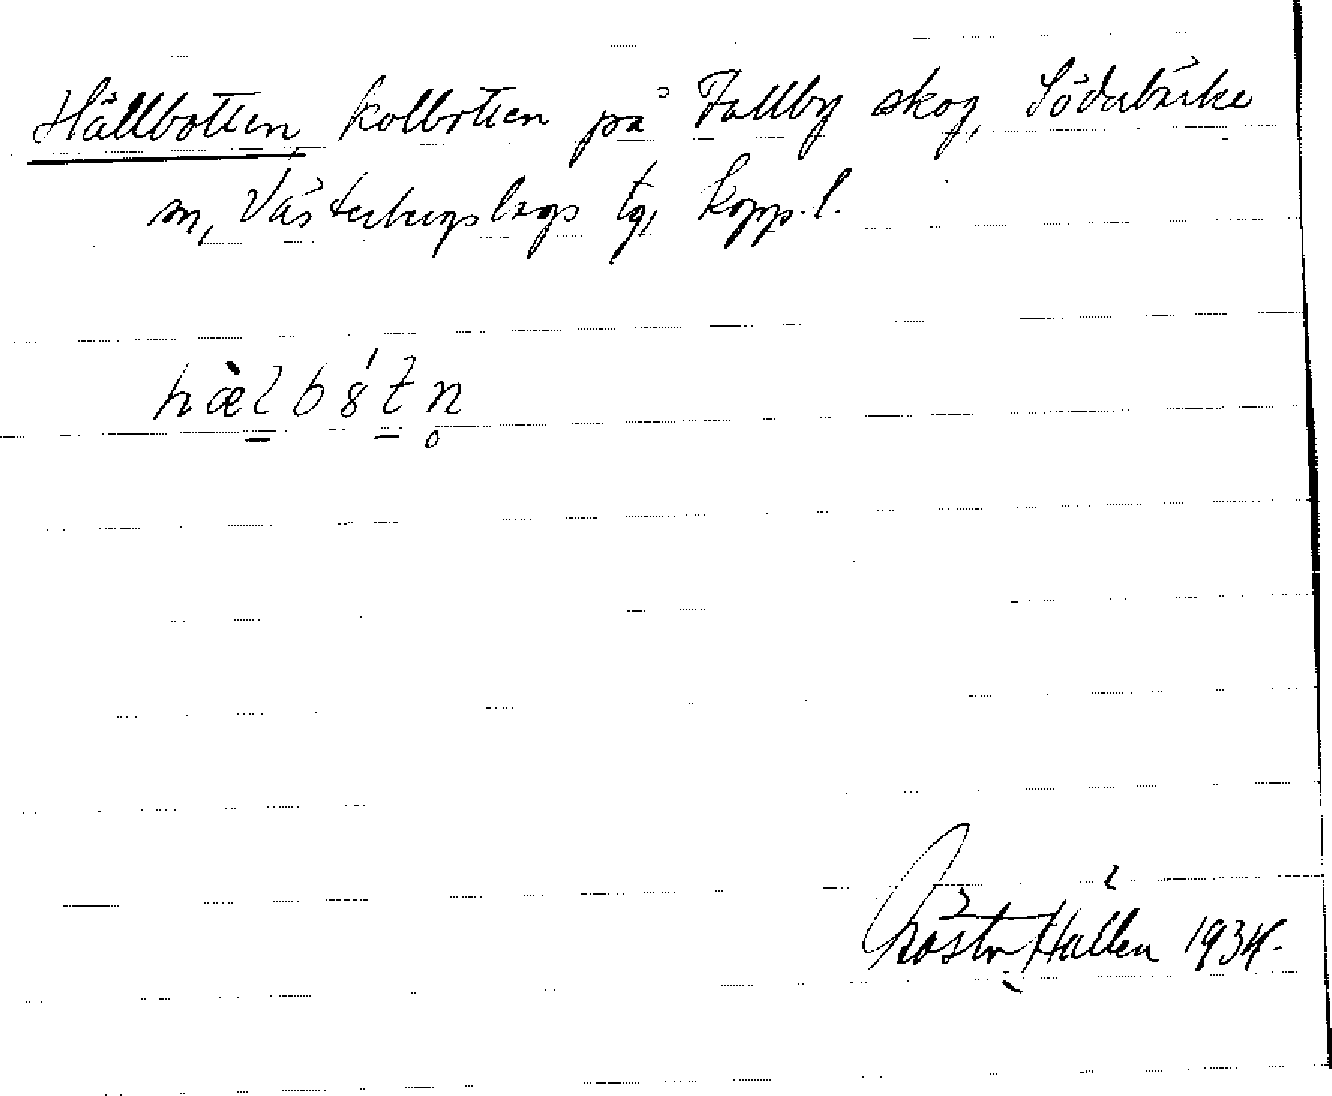 Hällbotten, kolbotten på Fallby skog, Söderbärke
sn, Västerbergslags tg, Kopp. l.
hæ̀l bó̱tn̥
Hallén 1934.